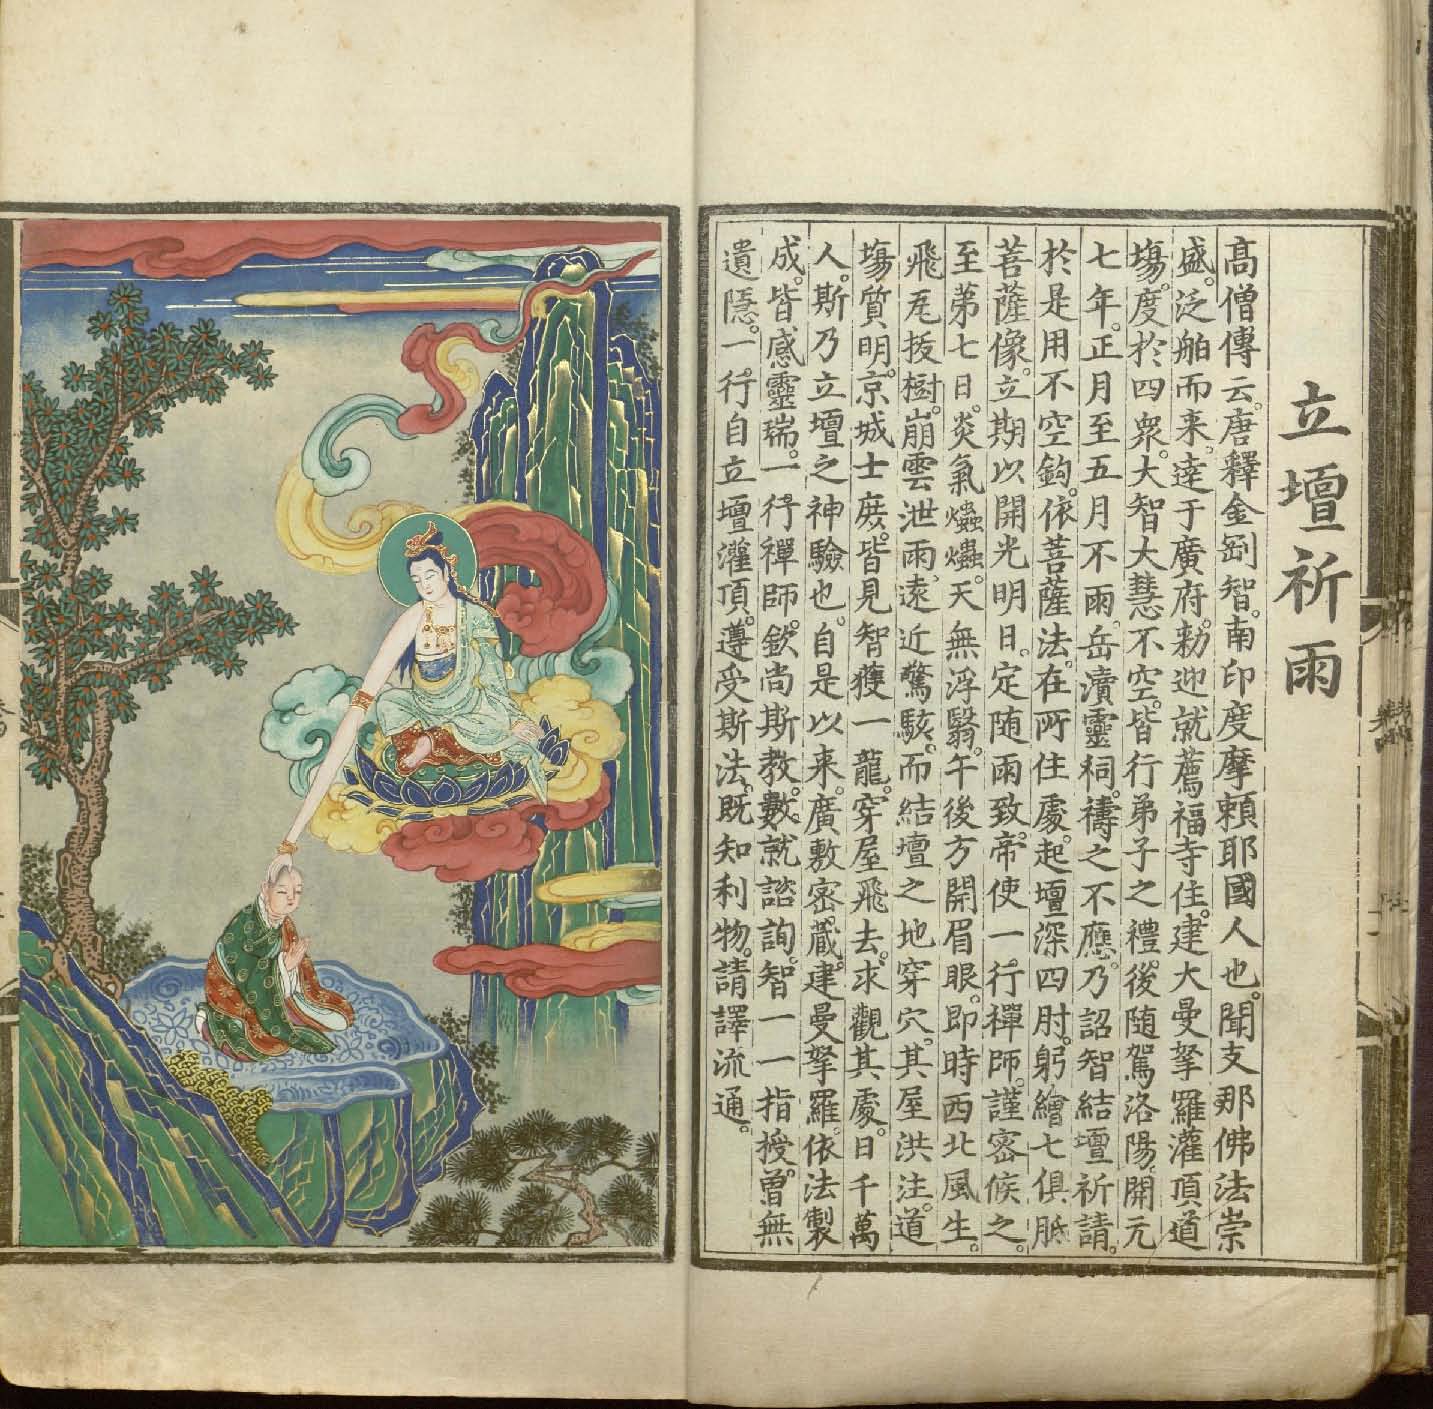 立壇祈雨
高僧傳云。唐釋金剛智。南印度摩賴耶國人也。聞支那佛法崇
盛。泛舶而来。達于廣府。勑迎就薦福寺住。建大曼拏羅灌頂道
塲。度於四衆。大智大慧不空。皆行弟子之禮。後随駕洛陽。開元
七年。正月至五月不雨。岳瀆靈祠。禱之不應。乃詔智結壇祈請。
於是用不空鈎。依菩薩法。在所住處。起壇深四肘。躬繪七俱胝
菩薩像。立期以開光明日。定随雨致。帝使一行禪師。謹密候之。
至第七日。炎氣爞爞。天無浮翳。午後方開眉眼。即時西北風生。
飛瓦拔樹。崩雲泄雨。遠近驚駭。而結壇之地。穿穴其屋。洪注道
塲。質明。京城士庶。皆見智獲一龍。穿屋飛去。求觀其處。日千萬
人。斯乃立壇之神驗也。自是以来。廣敷密藏。建曼拏羅。依法製
成。皆感靈瑞。一行禪師。欽尚斯教。數就諮詢。智一一指授。曾無
遺隱。一行自立壇灌頂。遵受斯法。既知利物。請譯流通。